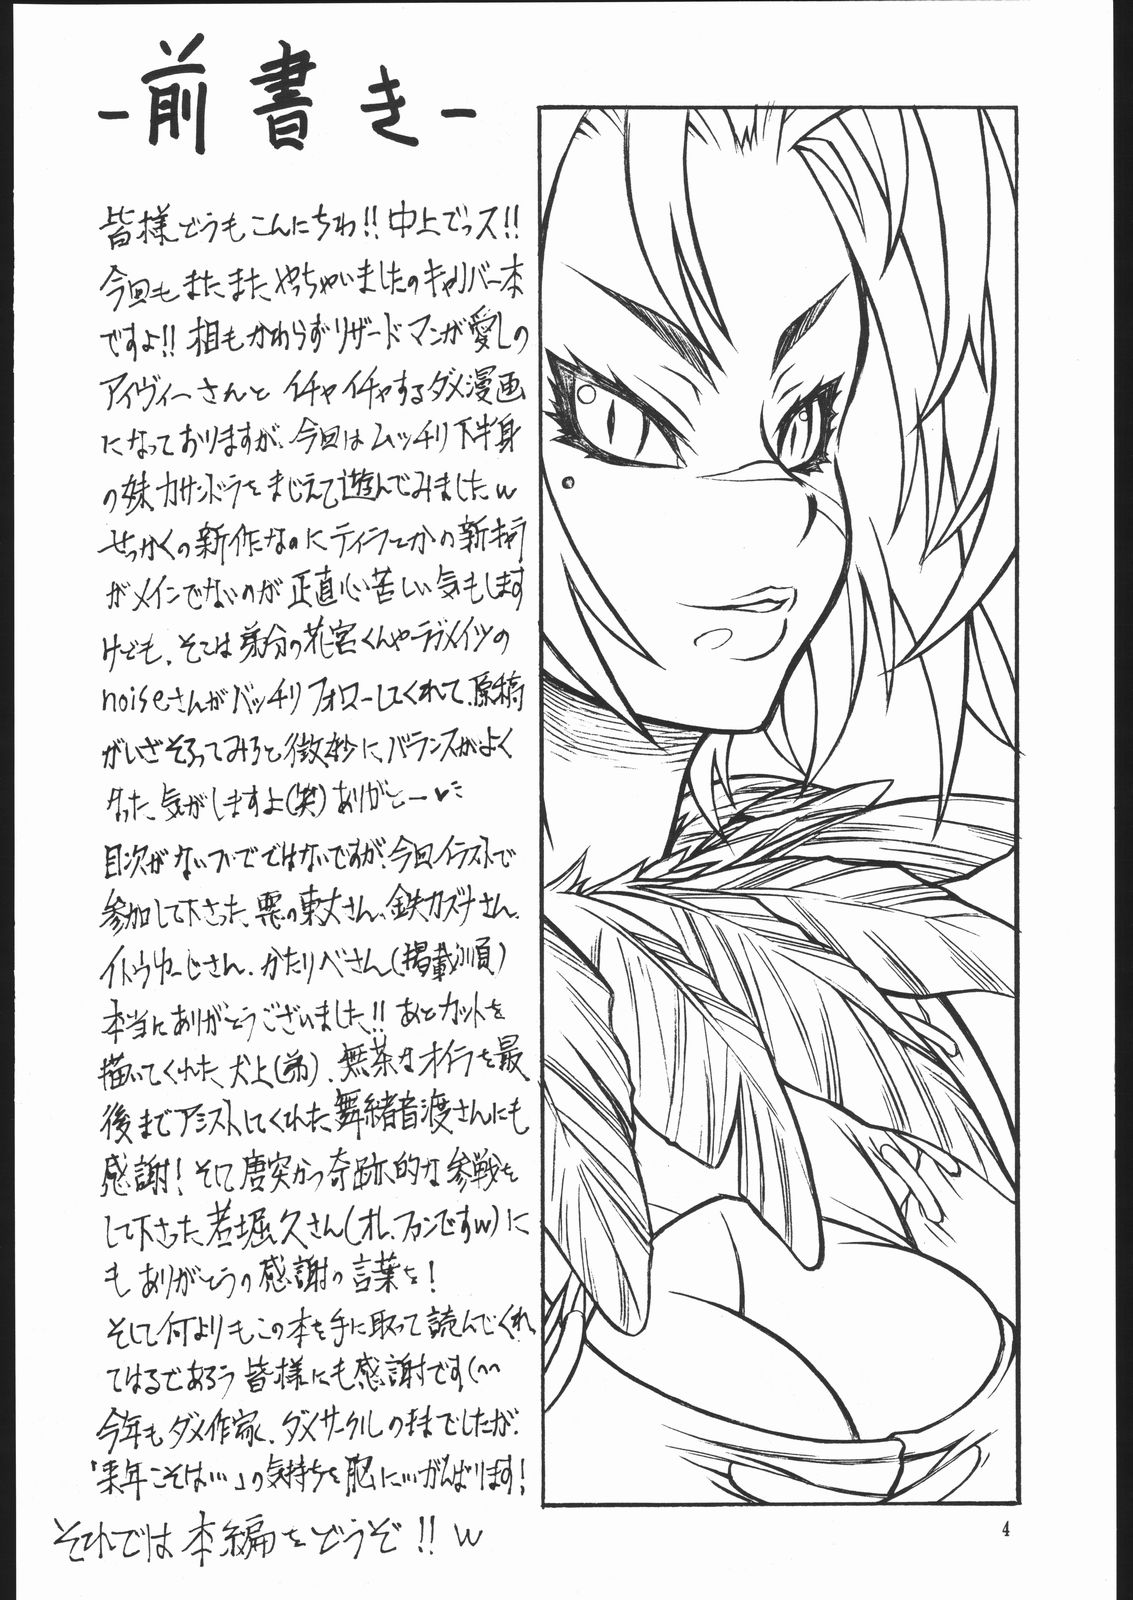 -前書き-
皆様どうもこんにちわ!!中上でっス!!
今回もまたまたやっちゃいましたのキャリバー本
ですよ!!相もかわらずリザードマンが愛しの
アイヴィーさんとイチャイチャするダメ漫画
になっておりますが、今回はムッチリ下半身
の妹カサンドラをまじえて遊んでみましたw
せっかくの新作なのにティラとかの新キャラ
がメインでないのが正直心苦しい気もします
けども、そこは弟分の花宮くんやラヴメイツの
noiseさんがバッチリフォローしてくれて、原稿
がいざそろってみると微妙に、バランスがよく
なった気がしますよ(笑)ありがとー♥
目次がないついでではないですが、今回イラストで
参加して下さった、悪の東丈さん、鉄カズナさん、
イトウゆーじさん、かたりべさん(掲載順)
本当にありがとうございました!!あとカットを
描いてくれた、犬上(弟)、無茶なオイラを最
後までアシストしてくれた舞緒音渡さんにも
感謝!そして唐突かつ奇跡的な参戦を
して下さった若堀久さん(オレ、ファンですw)に
もありがとうの感謝の言葉を!
そして何よりもこの本を手に取って読んでくれ
てはるであろう皆様にも感謝です(^^
今年もダメ作家、ダメサークルのままでしたが、
「来年こそは…」の気持ちを胸に…がんばります!
それでは本編をどうぞ!!w
4